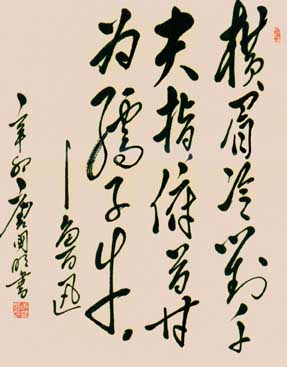 横眉冷对千
夫指，俯首甘
为孺子牛。
—鲁迅
辛卯 唐国明书